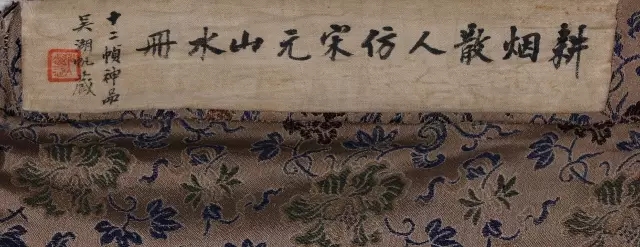 耕烟散人仿宋元山水册
十二帧神品
吴湖帆藏